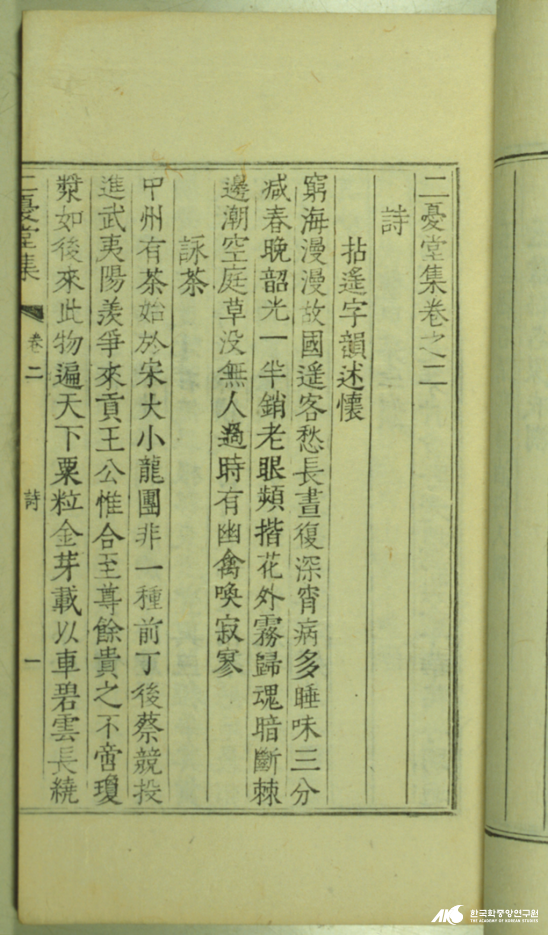 二憂堂集卷之二
詩
拈遙字韻述懷
窮海漫漫故國遙客愁長晝復深宵病多睡味三分
减春晚韶光一半銷老眼頻揩花外霧歸魂暗斷棘
邊潮空庭草没無人過時有幽禽喚寂寥
詠茶
中州有茶始於宋大小龍團非一種前丁後蔡競投
進武夷陽羨爭來貢王公惟合至尊餘貴之不啻瓊
漿如後來此物遍天下粟粒金芽載以車碧雲長繞
二憂堂集 卷二 詩 一
한국학중앙연구원
THE ACADEMY OF KOREAN STUDIES